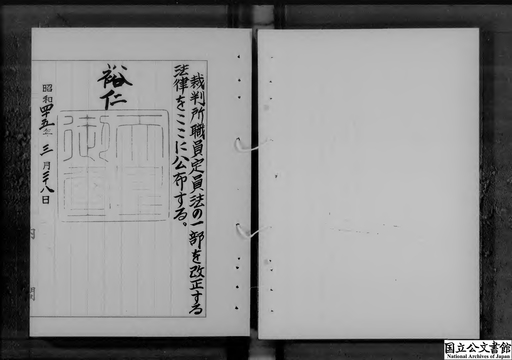 裁判所職員定員法の一部を改正する
法律をここに公布する。
裕仁
昭和四十五年三月二十八日
国立公文書館
National Archives of Japan